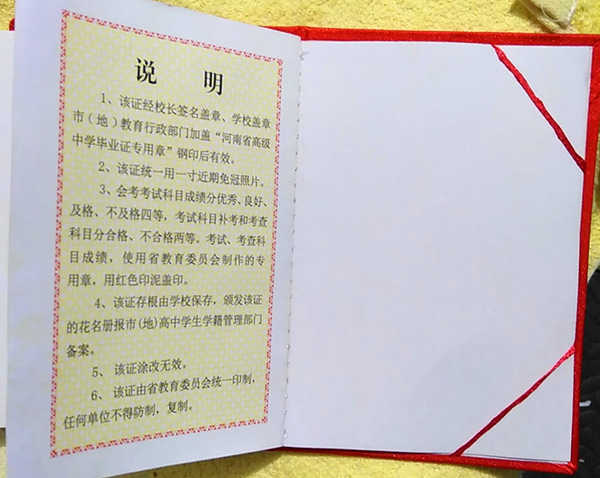 说 明
1、该证经校长签名盖章、学校盖章
市(地)教育行政部门加盖“河南省高级
中学毕业证专用章”钢印后有效。
2、该证统一用一寸近期免冠照片。
3、会考考试科目成绩分优秀、良好、
及格、不及格四等，考试科目补考和考查
科目分合格、不合格两等。考试、考查科
目成绩，使用省教育委员会制作的专
用章，用红色印泥盖印。
4、该证存根由学校保存，颁发该证
的花名册报市(地)高中学生学籍管理部门
备案。
5、该证涂改无效。
6、该证由省教育委员会统一印制，
任何单位不得防制，复制。